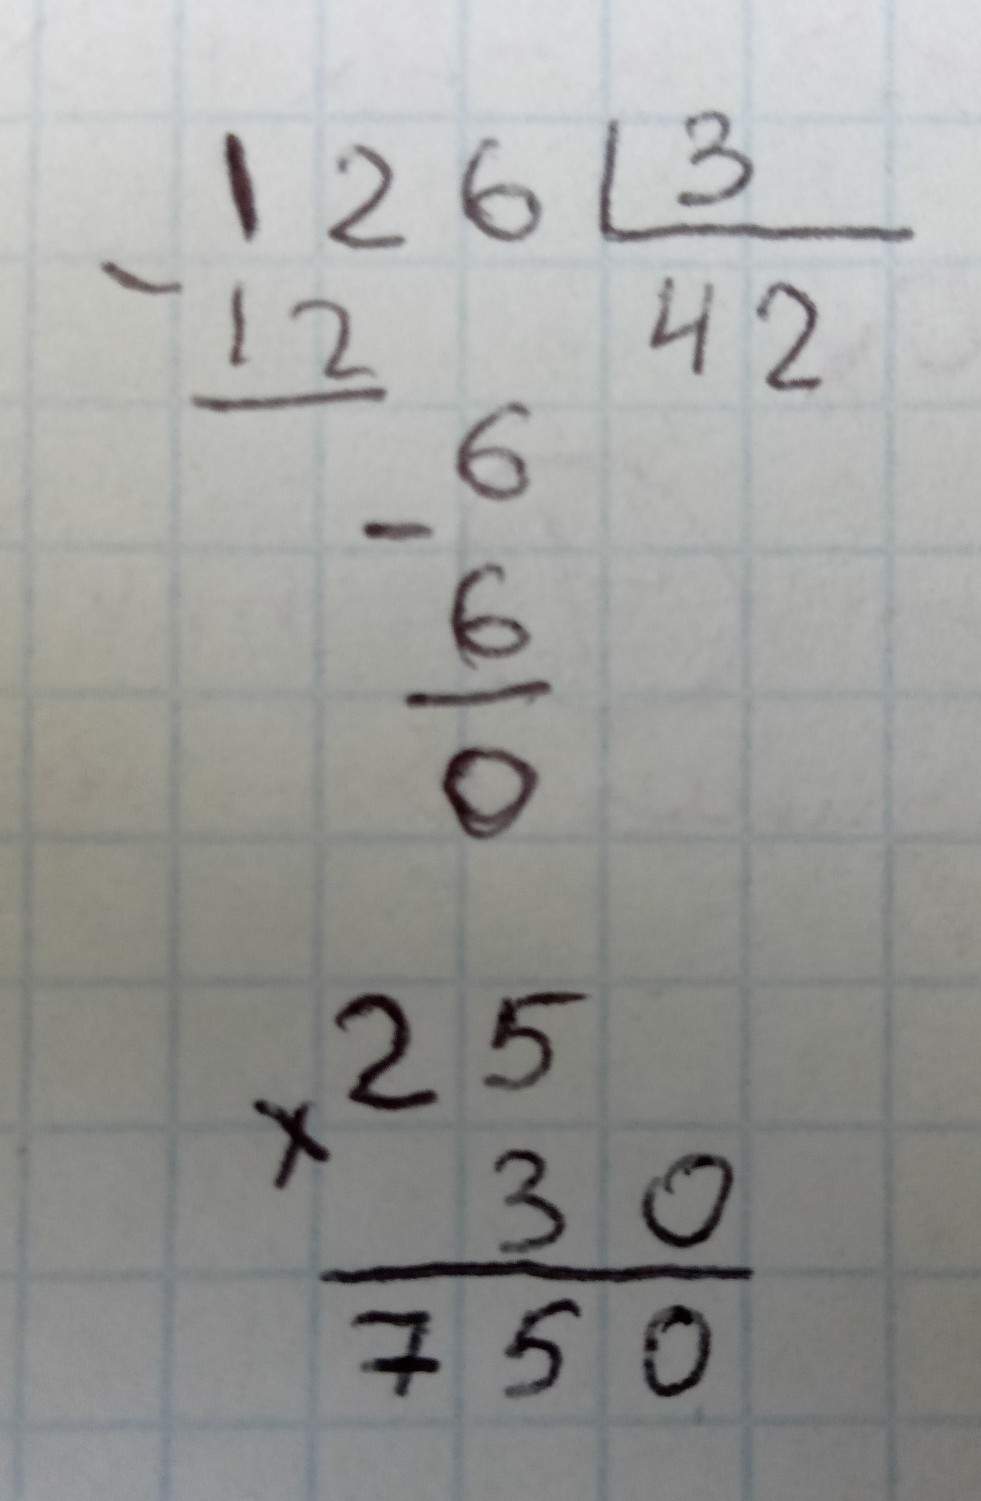 126 3
- 12 42
6
-
6
0
25
x
30
750